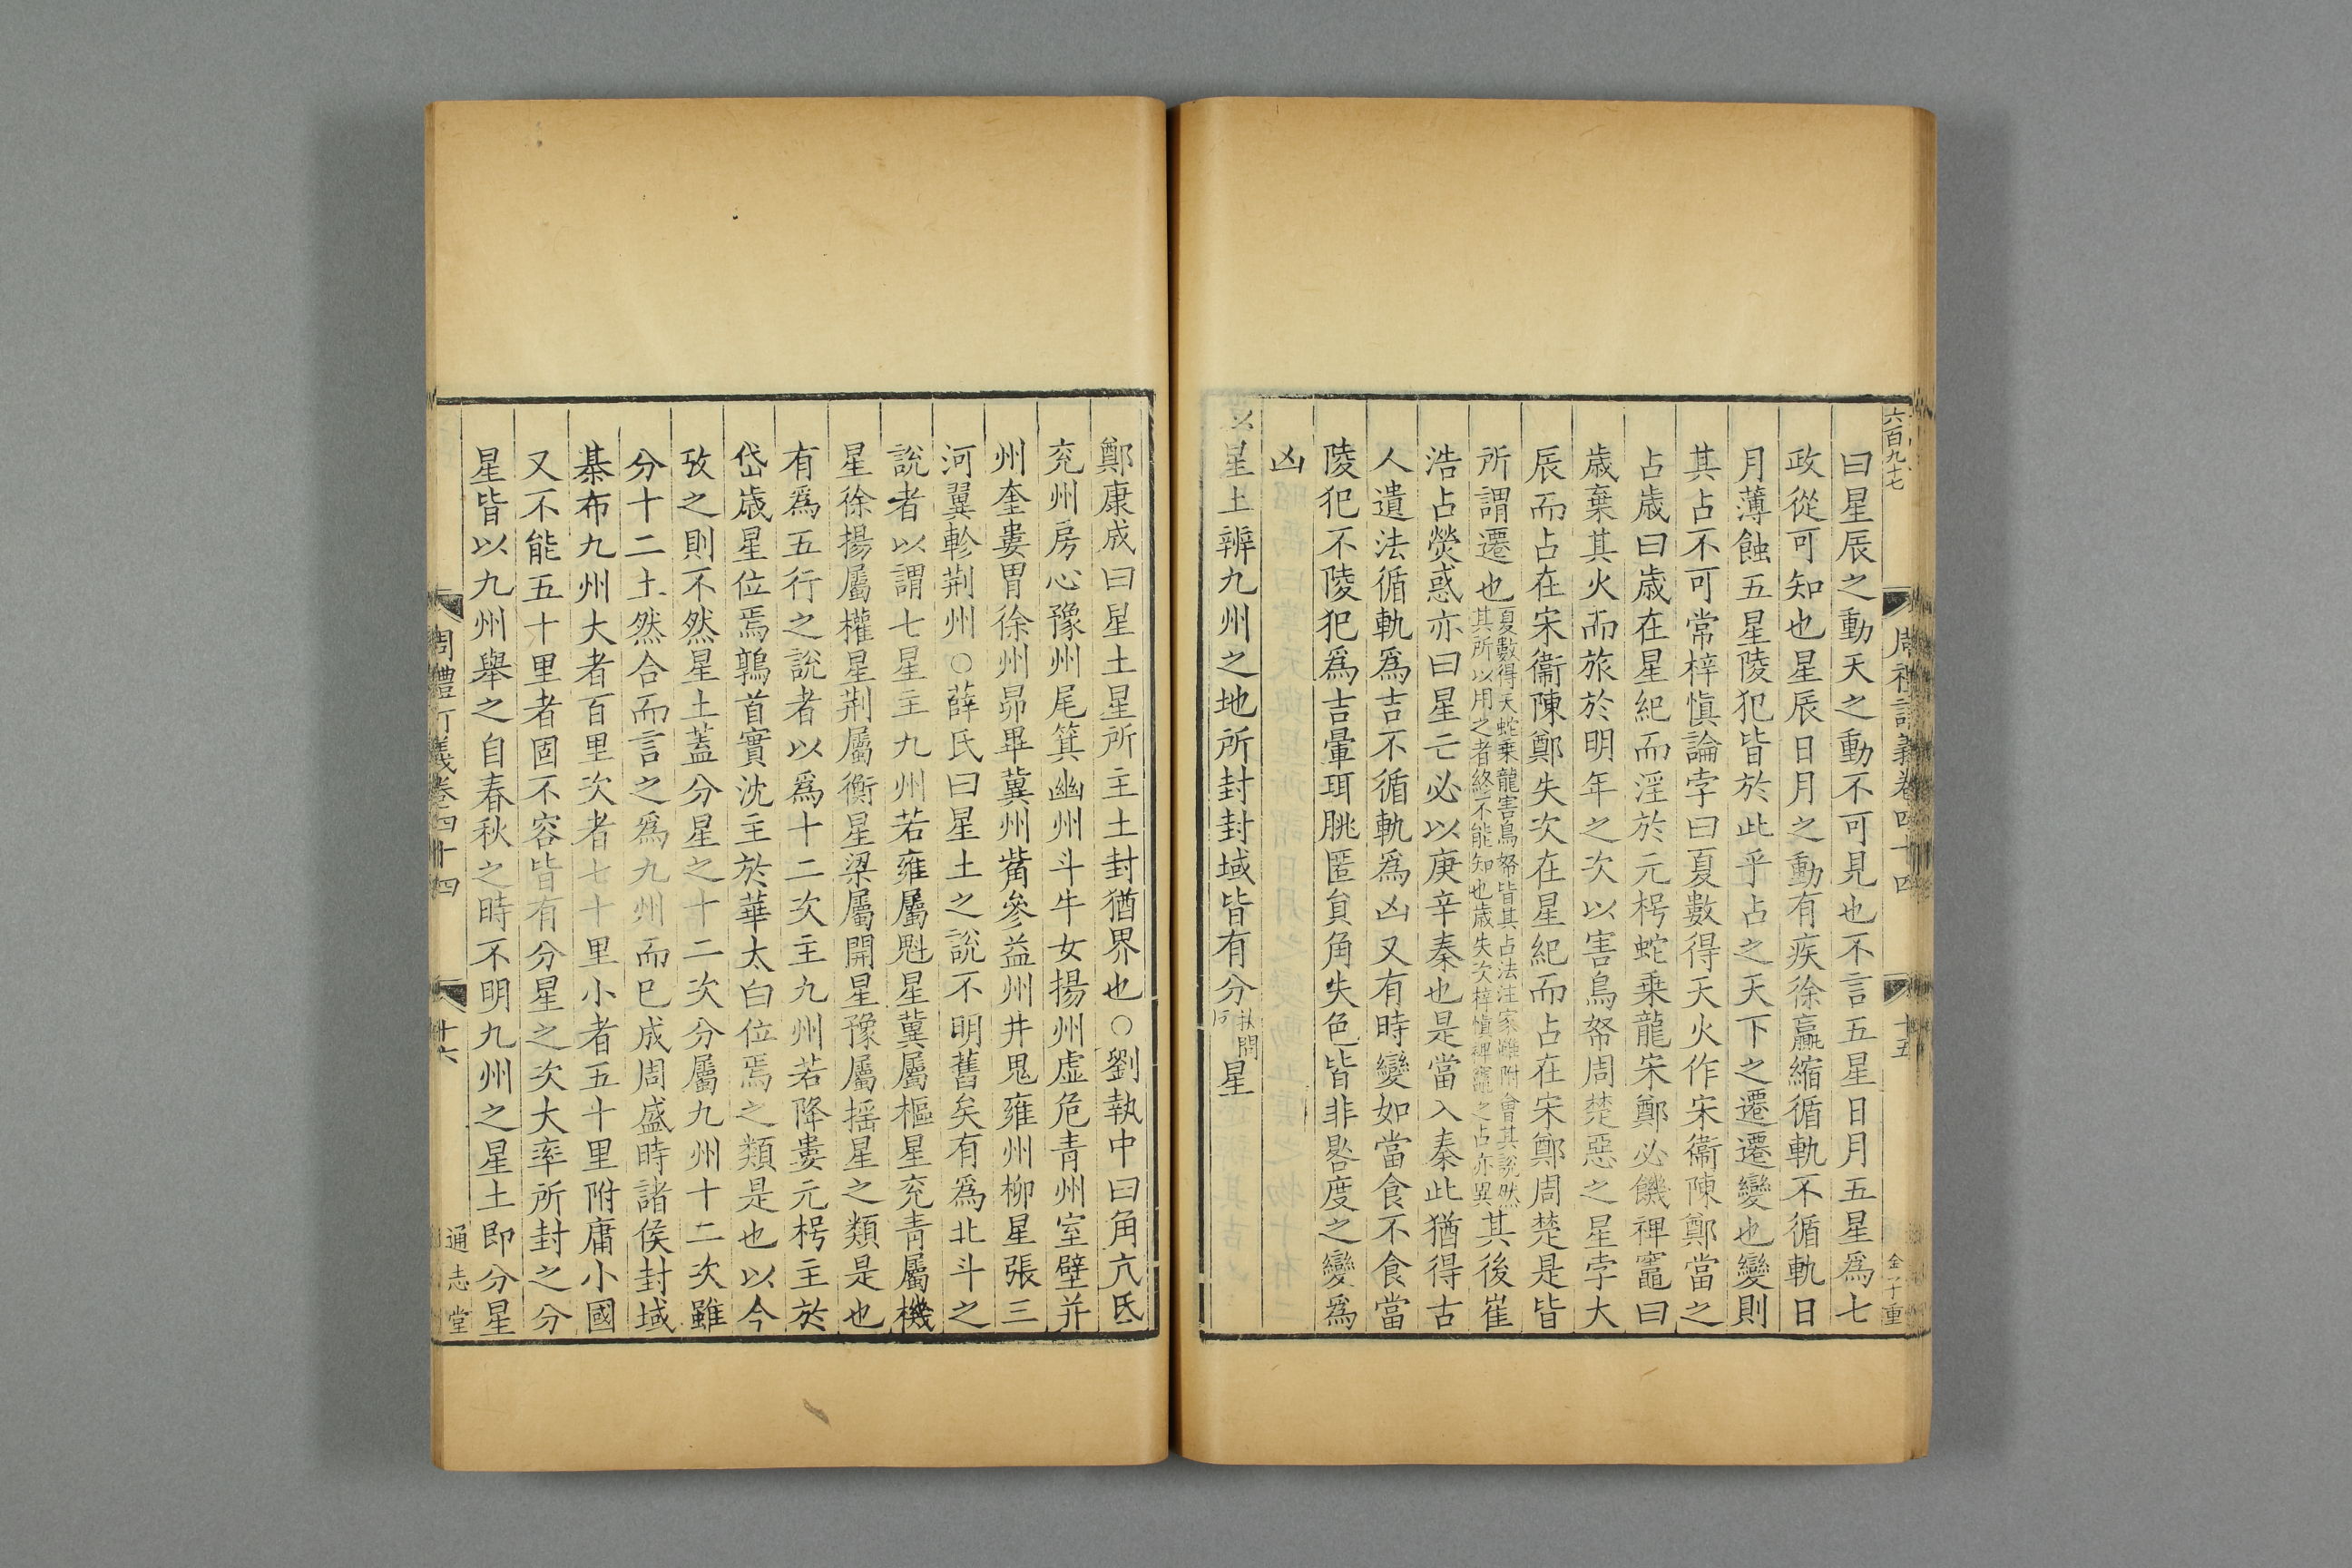 六百九十七
周禮訂義卷四十四
十五
金子重
曰星辰之動天之動不可見也不言五星日月五星爲七
政從可知也星辰日月之動有疾徐贏縮循軌不循軌日
月薄蝕五星陵犯皆於此乎占之天下之遷遷變也變則
其占不可常梓愼論孛曰夏數得天火作宋衞陳鄭當之
占歲曰歲在星紀而淫於元枵蛇乗龍宋鄭必饑禆竈曰
歲棄其火而旅於明年之次以害鳥帑周楚惡之星孛大
辰而占在宋衞陳鄭失次在星紀而占在宋鄭周楚是皆
所謂遷也夏數得天蛇乗龍害鳥帑皆其占法注家雖附會其說然其所以用之者終不能知也歲失次梓愼禆竈之占亦異其後崔
浩占熒惑亦曰星亡必以庚辛秦也是當入秦此猶得古
人遺法循軌爲吉不循軌爲凶又有時變如當食不食當
陵犯不陵犯爲吉暈珥朓匿負角失色皆非晷度之變爲
凶
以星土辨九州之地所封封域皆有分扶問反星
鄭康成曰星土星所主土封猶界也○劉執中曰角亢氐
兖州房心豫州尾箕幽州斗牛女揚州虛危青州室壁并
州奎婁胃徐州昴畢冀州觜參益州井鬼雍州柳星張三
河翼軫荆州○薛氏曰星土之說不明舊矣有爲北斗之
說者以謂七星主九州若雍屬魁星冀屬樞星兖青屬機
星徐揚屬權星荆屬衡星梁屬開星豫屬摇星之類是也
有爲五行之說者以爲十二次主九州若降婁元枵主於
岱歲星位焉鶉首實沈主於華太白位焉之類是也以今
攷之則不然星土蓋分星之十二次分屬九州十二次雖
分十二土然合而言之爲九州而巳成周盛時諸侯封域
棊布九州大者百里次者七十里小者五十里附庸小國
又不能五十里者固不容皆有分星之次大率所封之分
星皆以九州舉之自春秋之時不明九州之星土即分星
周禮訂義卷四十四
十六
通志堂